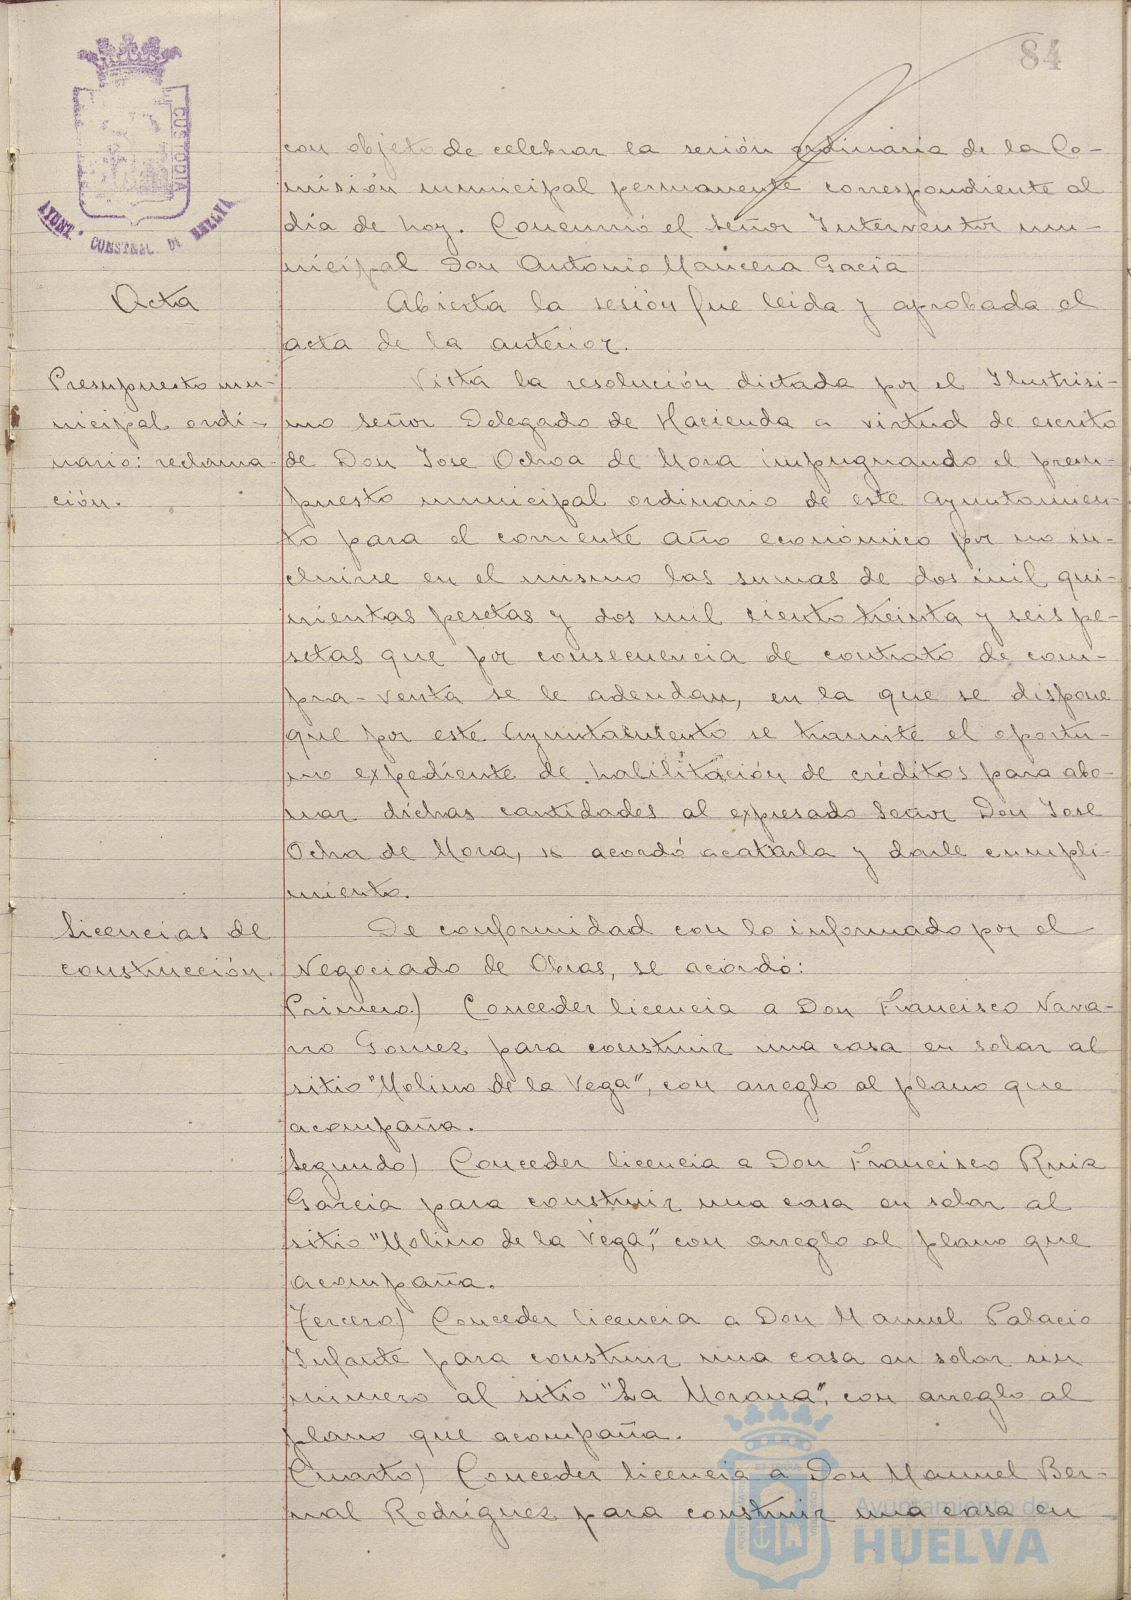 84
CUSTODIA
AYUNT. CONSTNAL. DE HUELVA
con objeto de celebrar la sesión ordinaria de la Co-
misión municipal permanente correspondiente al
día de hoy. Concurrió el señor Interventor mu-
nicipal Don Antonio Mancera Gacia
Acta
Abierta la sesión fue leida y aprobada el
acta de la anterior.
Presupuesto mu-
nicipal ordi-
nario: reclama-
ción.
Vista la resolución dictada por el Ilustrisi-
mo señor Delegado de Hacienda a virtud de escrito
de Don Jose Ochoa de Mora impugnando el presu-
puesto municipal ordinario de este Ayuntamien-
to para el corriente año económico por no in-
cluirse en el mismo las sumas de dos mil qui-
nientas pesetas y dos mil ciento treinta y seis pe-
setas que por consecuencia de contrato de com-
pra-venta se le adeudan, en la que se dispone
que por este Ayuntamiento se tramite el oportu-
no expediente de habilitación de créditos para abo-
nar dichas cantidades al expresado Señor Don Jose
Ocha de Mora, se acordó acatarla y darle cumpli-
miento.
Licencias de
construcción.
De conformidad con lo informado por el
Negociado de Obras, se acordó:
Primero) Conceder licencia a Don Francisco Nava-
rro Gomez para construir una casa en solar al
sitio "Molino de la Vega", con arreglo al plano que
acompaña.
Segundo) Conceder licencia a Don Francisco Ruiz
Garcia para construir una casa en solar al
sitio "Molino de la Vega", con arreglo al plano que
acompaña.
Tercero) Conceder licencia a Don Manuel Palacio
Infante para construir una casa en solar sin
número al sitio "La Morana", con arreglo al
plano que acompaña.
Cuarto) Conceder licencia a Don Manuel Ber-
nal Rodríguez para construir una casa en
Ayuntamiento de
HUELVA